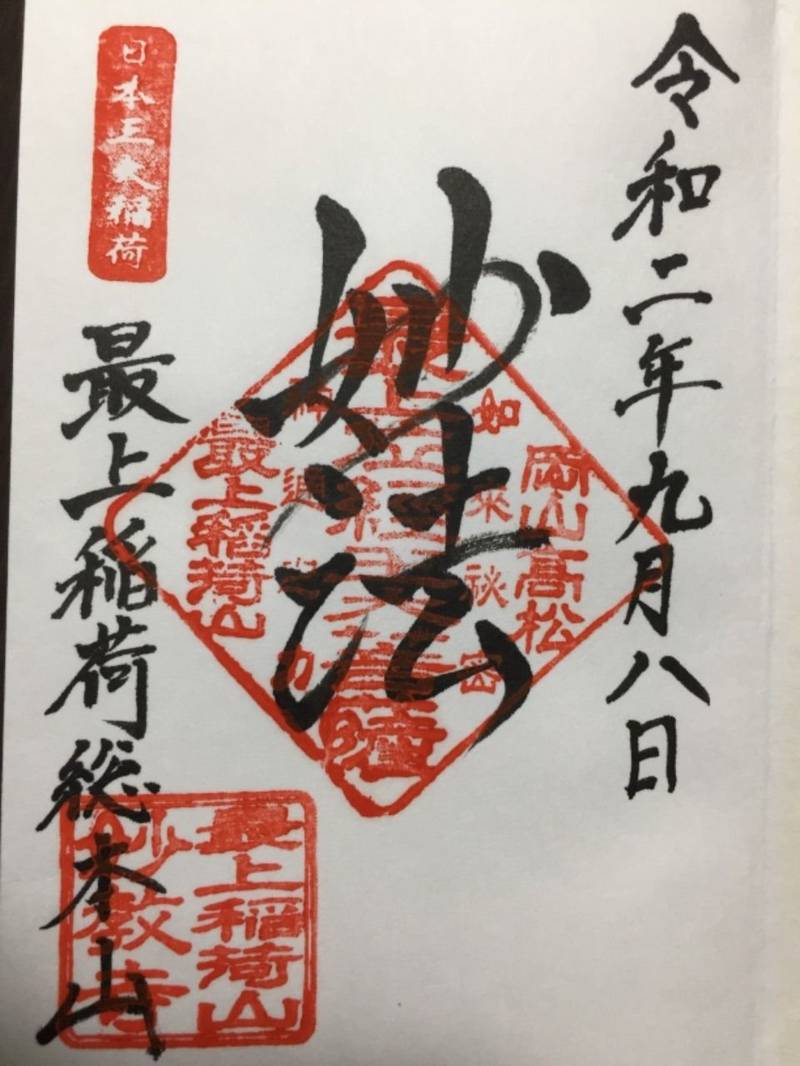 令和二年九月八日
妙法
岡山高松
如来秘密
神通力
最上稲荷山
日本三大稲荷
最上稲荷総本山
最上稲荷山
妙教寺